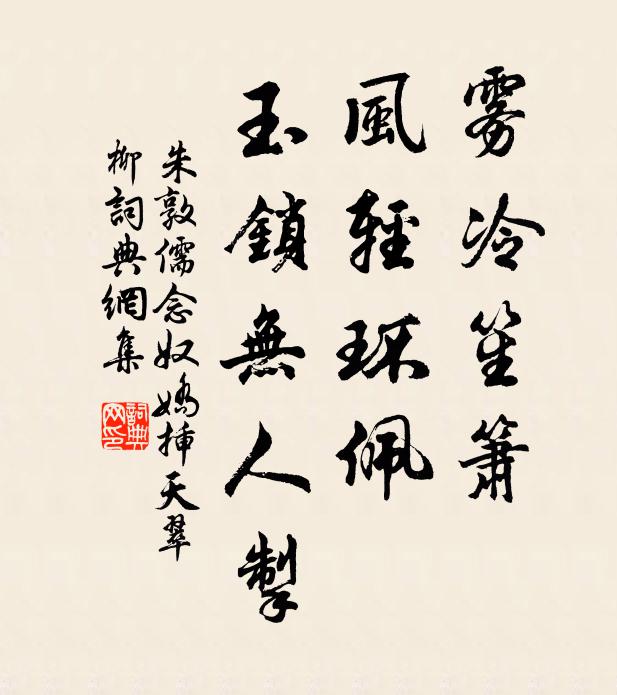 雾冷笙簫
風輕珮佩
玉鎖無人掣
朱敦儒念奴嬌插天翠
柳詞典網集
詞典網印